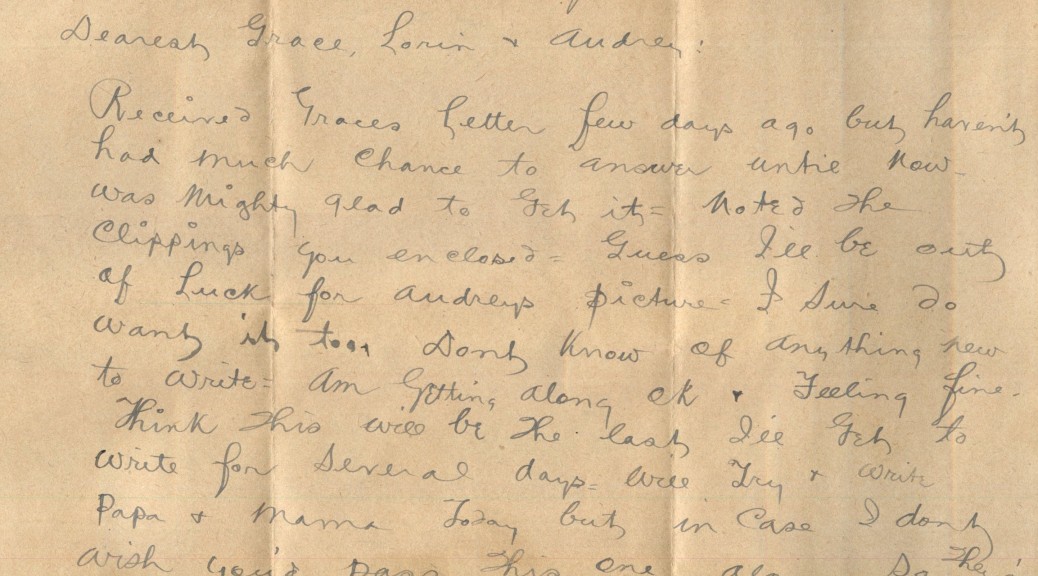 Dearest Grace, Lorin & Audrey:
Received Graces letter few days ago but haven't
had much chance to answer until now-
was mighty glad to get it= Noted the
Clippings you enclosed= Guess I'll be out
of Luck for Audreys picture= I Sure do
want it too, Dont Know of anything new
to write= Am getting along OK & Feeling fine-
Think this will be the last I'll Get to
write for Several days= Will Try & write
Papa & Mama Today but in Case I dont
wish you'd pass this one So They